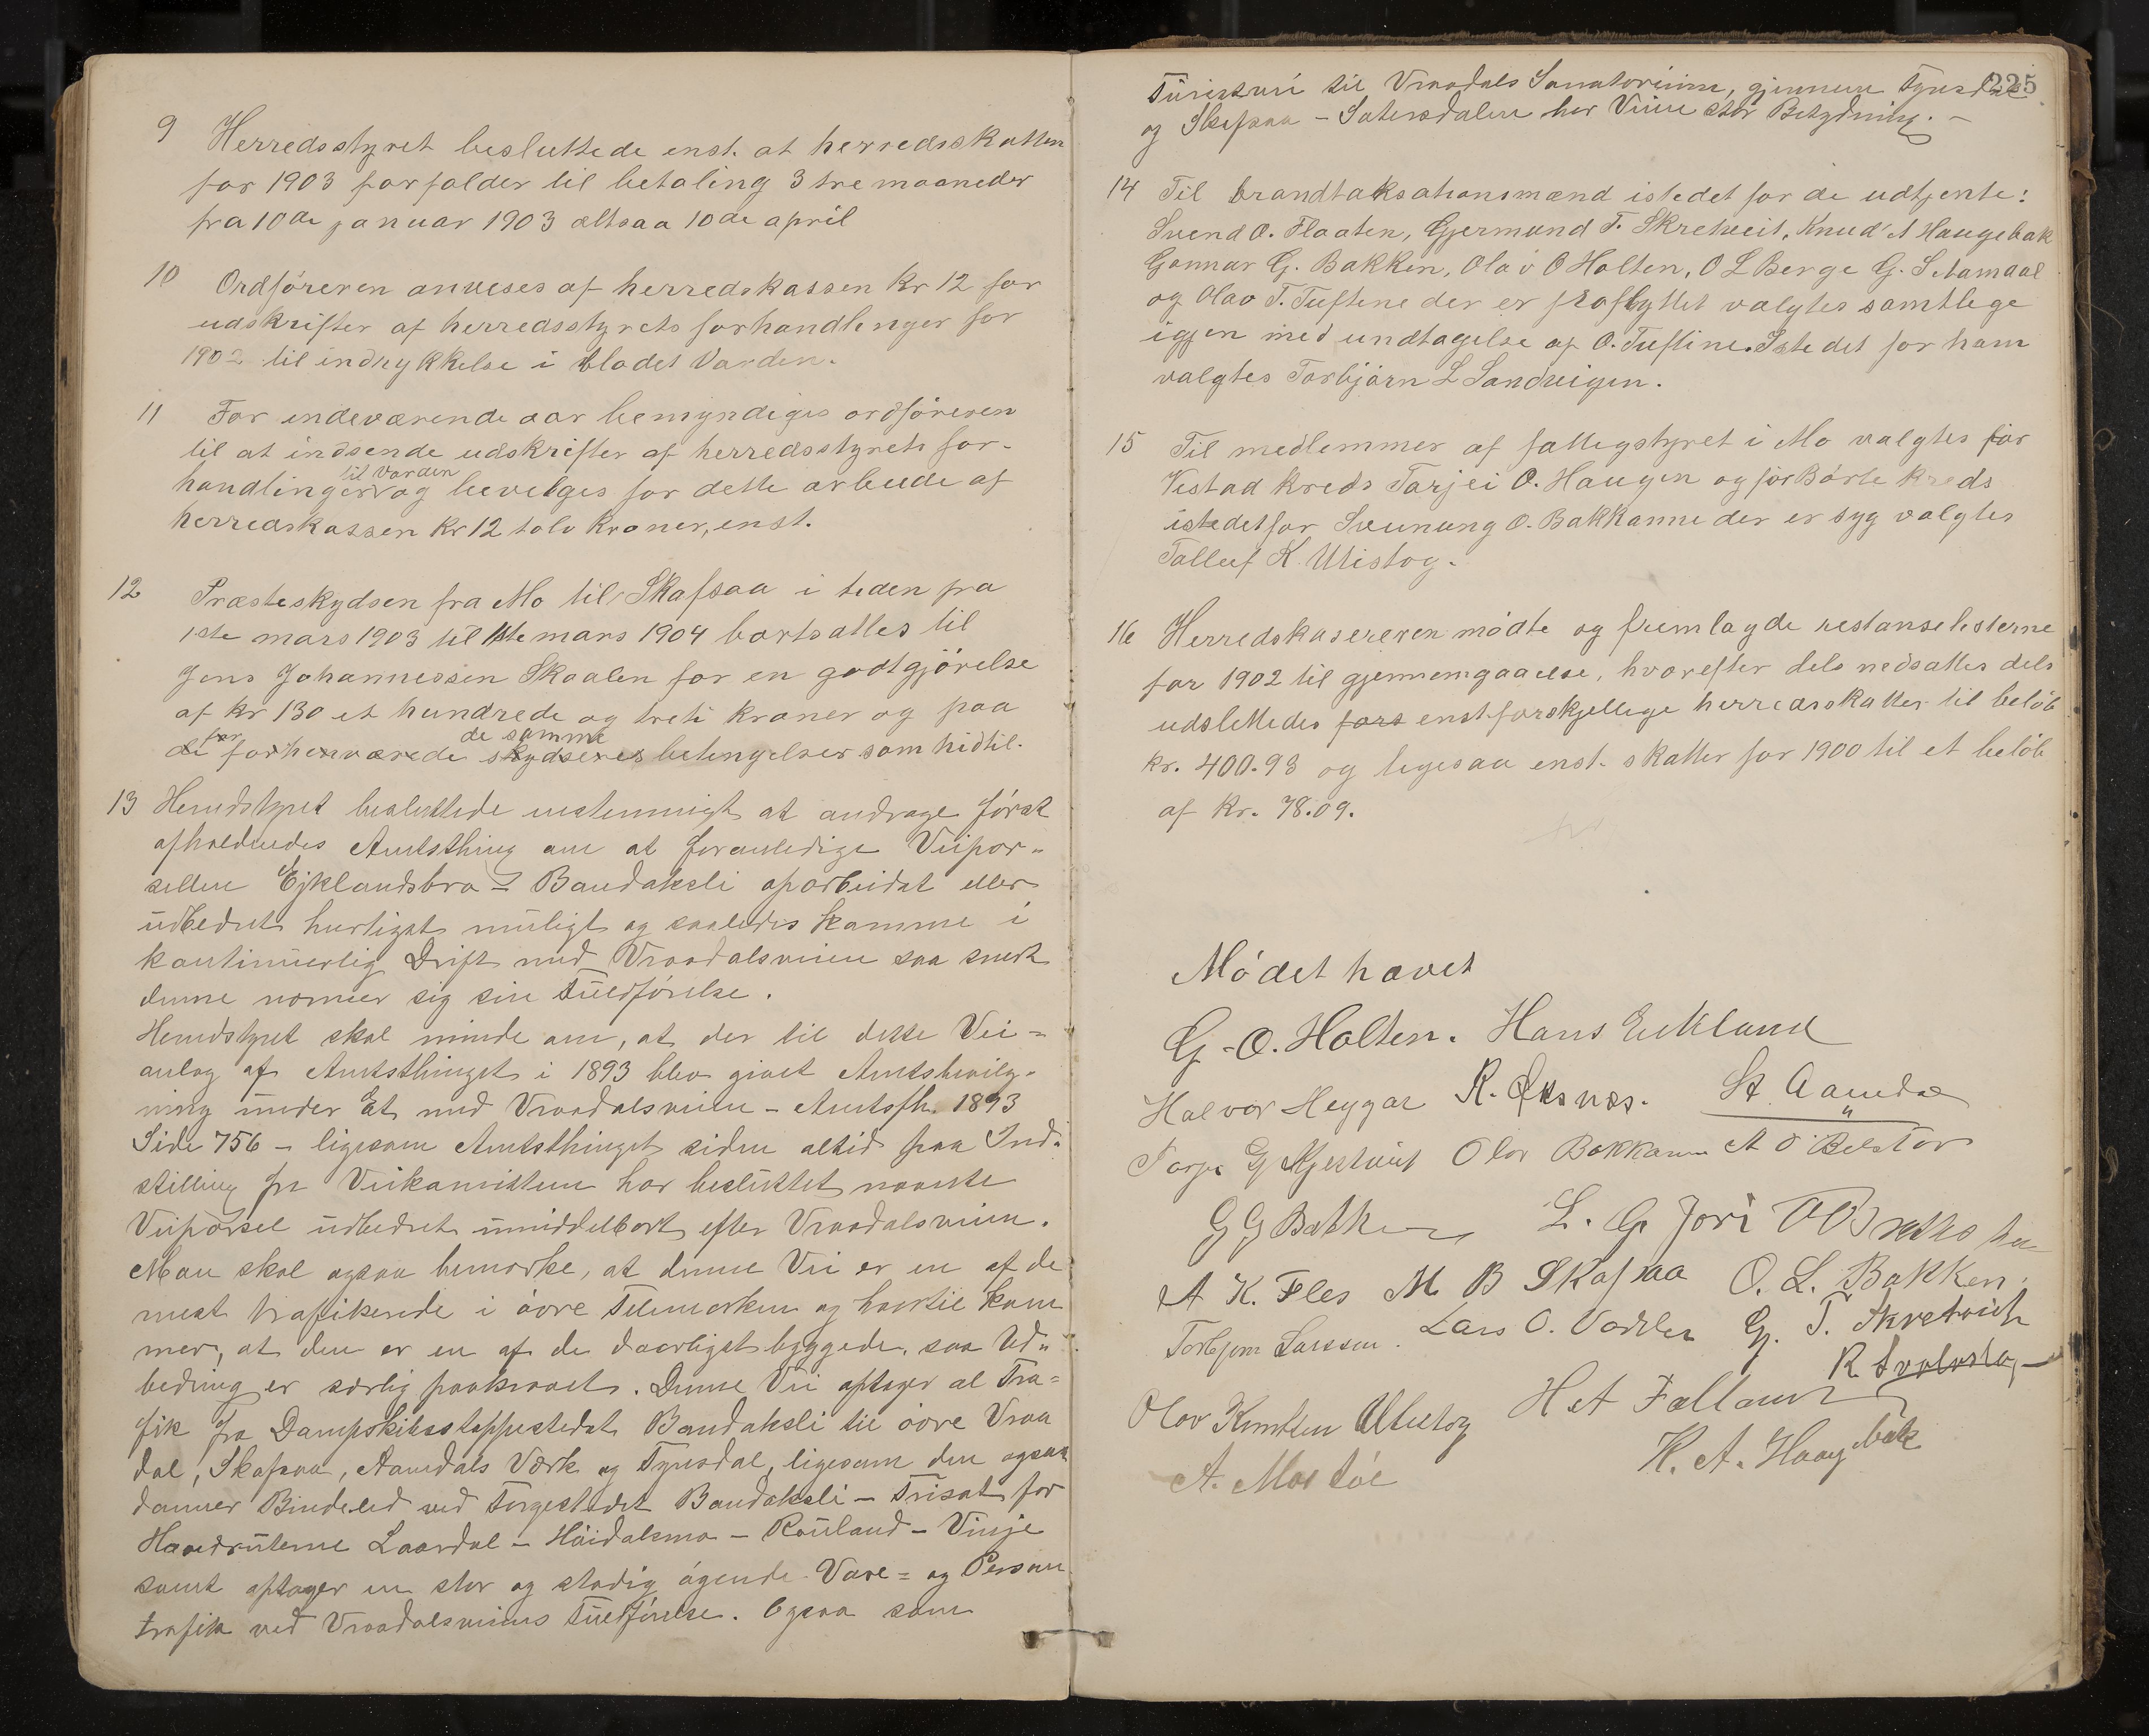 9 Herredsstyret besluttede enst. at herredsskatten
for 1903 forfalder til betaling 3 tre maaneder
fra 10de januar 1903 altsaa 10de april
10 Ordføreren anvises af herredskassen kr 12 for
udskrifter af herredsstyrets forhandlinger for
1902 til indrykkelse i bladet Varden.
11 For indeværende aar bemyndiges ordføreren
til at indsende udskrifter af herredsstyrets for-
til Varden
handlinger og bevilges for dette arbeide af
herredskassen kr 12 tolv kroner, enst.
12 Præsteskydsen fra Mo til Skafsaa i tiden fra
1ste mars 1903 til 1ste mars 1904 bortsattes til
Jens Johannessen Skaalen for en godtgjørelse
af kr 130 et hundrede og treti kroner og paa
de samme
betingelser som hidtil.
13 Herredstyret besluttede enstemmigt at andrage først
afholdendes Amtsthing om at foranledige Veipar-
sellen Ejklandsbro - Bandaksli oparbeidet eller
udbedret hurtigst muligt og saaledes komme i
kontinuerlig Drift med Vraadalsveien saa snart
denne nærmer sig sin Fuldførelse.
Herredstyret skal minde om, at der til dette Vei-
anlæg af Amtsthinget i 1893 blev givet Amtsbevilg-
ning under Et med Vraadalsveien - Amtsfh. 1893
Side 756 - ligesom Amtsthinget siden altid paa Ind-
stilling fra Veikomiteen har besluttet nævnte
Veiparsel udbedret umiddelbart efter Vraadalsveien.
Man skal ogsaa bemærke, at denne Vei er en af de
mest trafikerede i øvre Telemarken og hvortil kom
mer, at den er en af de daarligst byggede, saa Ud-
bedring er særlig paakrævet. Denne Vei optager al Tra-
fik fra Dampskibsstoppestedet Bandaksli til øvre Vraa
dal, Skafsaa, Aamdals Værk og Fyrisdal, ligesom den ogsaa
danner Bindeled ved Færgestedet Bandaksli - Triset for
Hovedruterne Laardal - Høidalsmo - Rauland - Vinje
samt optager en stor og stadig øgende Vare- og Person
trafik ved Vraadalsveiens Fuldførelse. Ogsaa som
225
Turistvei til Vraadals Sanatorium, gjennem Fyrisdal
og Skafsaa - Sætersdalen har Veien stor Betydning. -
14 Til brandtaksationsmænd istedet for de udtjente:
Svend O. Flaaten, Gjermund T. Skretveit, Knud A Haugebak
Gunnar G. Bakken, Olav O Holten, O L Berge G. S Aamdal
og Olav T. Tuftene der er fraflyttet valgtes samtlege
igjen med undtagelse af O. Tuftine. Istedet for ham
valgtes Torbjørn L Sandvigen.
15 Til medlemmer af fattigstyret i Mo valgtes for
Vestad kreds Tarjei O. Haugen og for Børte kreds
istedetfor Sveinung O. Bakkanne der er syg valgtes
Tallef K Utistog.
16 Herredskasereren mødte og fremlagde restanselisterne
for 1902 til gjennemgaaelse, hvorefter dels nedsattes dels
udslettedes enst forskjellege herredsskatter til beløb
kr. 400.93 og legesaa enst. skatter for 1900 til et beløb
af kr. 78.09.
Mødet hævet
G. O. Holten. Hans Eikland
Halvor Heggar R. Øksnæs. St. Aamdal
Olav Bakkann
G G Bakken L. G Jori
A K. Fles M B Skafsaa O. L. Bakken.
Torbjørn Larssen. Lars O. G. T. Skretveit
Olav Knutsen Utistog H A
A. Mostøl K. A. Haugebak